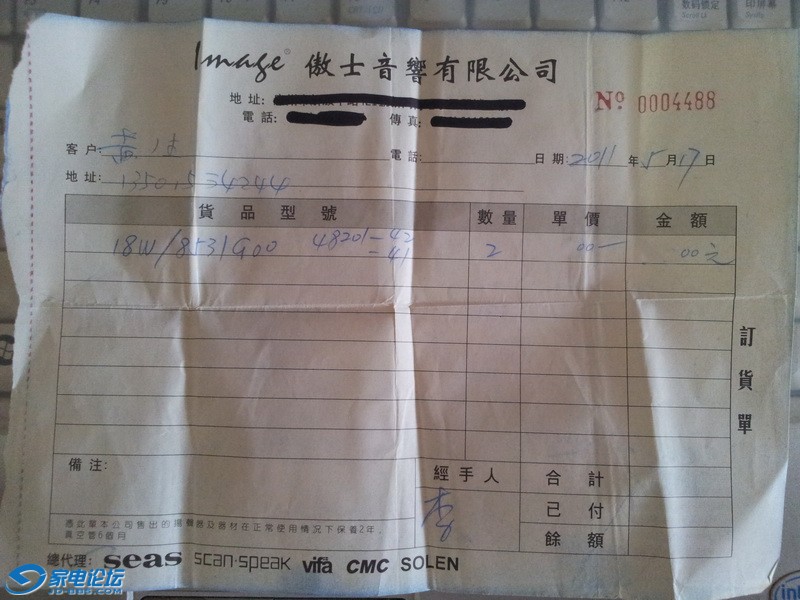 Image® 傲士音響有限公司
地址:
電話: 傳真:
No 0004488
客户: 電話: 日期: 2011 年 5 月 17 日
地址:
貨品型號 數量 單價 金額
18W/8531G00 48201-42 2 00一 00元
-41
訂貨單
備注: 經手人 合計
李 已付
憑此單本公司售出的揚聲器及器材在正常使用情況下保養2年,
真空管6個月 餘額
總代理: seas scan-speak vifa CMC SOLEN
家电论坛
JD-BBS.COM
数码锁定
Scroll
印屏幕